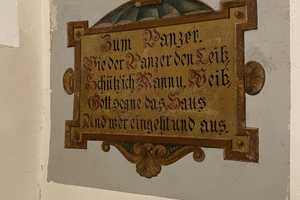 Zum Panzer.
Wie der Panzer den Leib,
Schütz ich Mann u. Weib,
Gott segne das Haus
Und wer eingeht und aus.